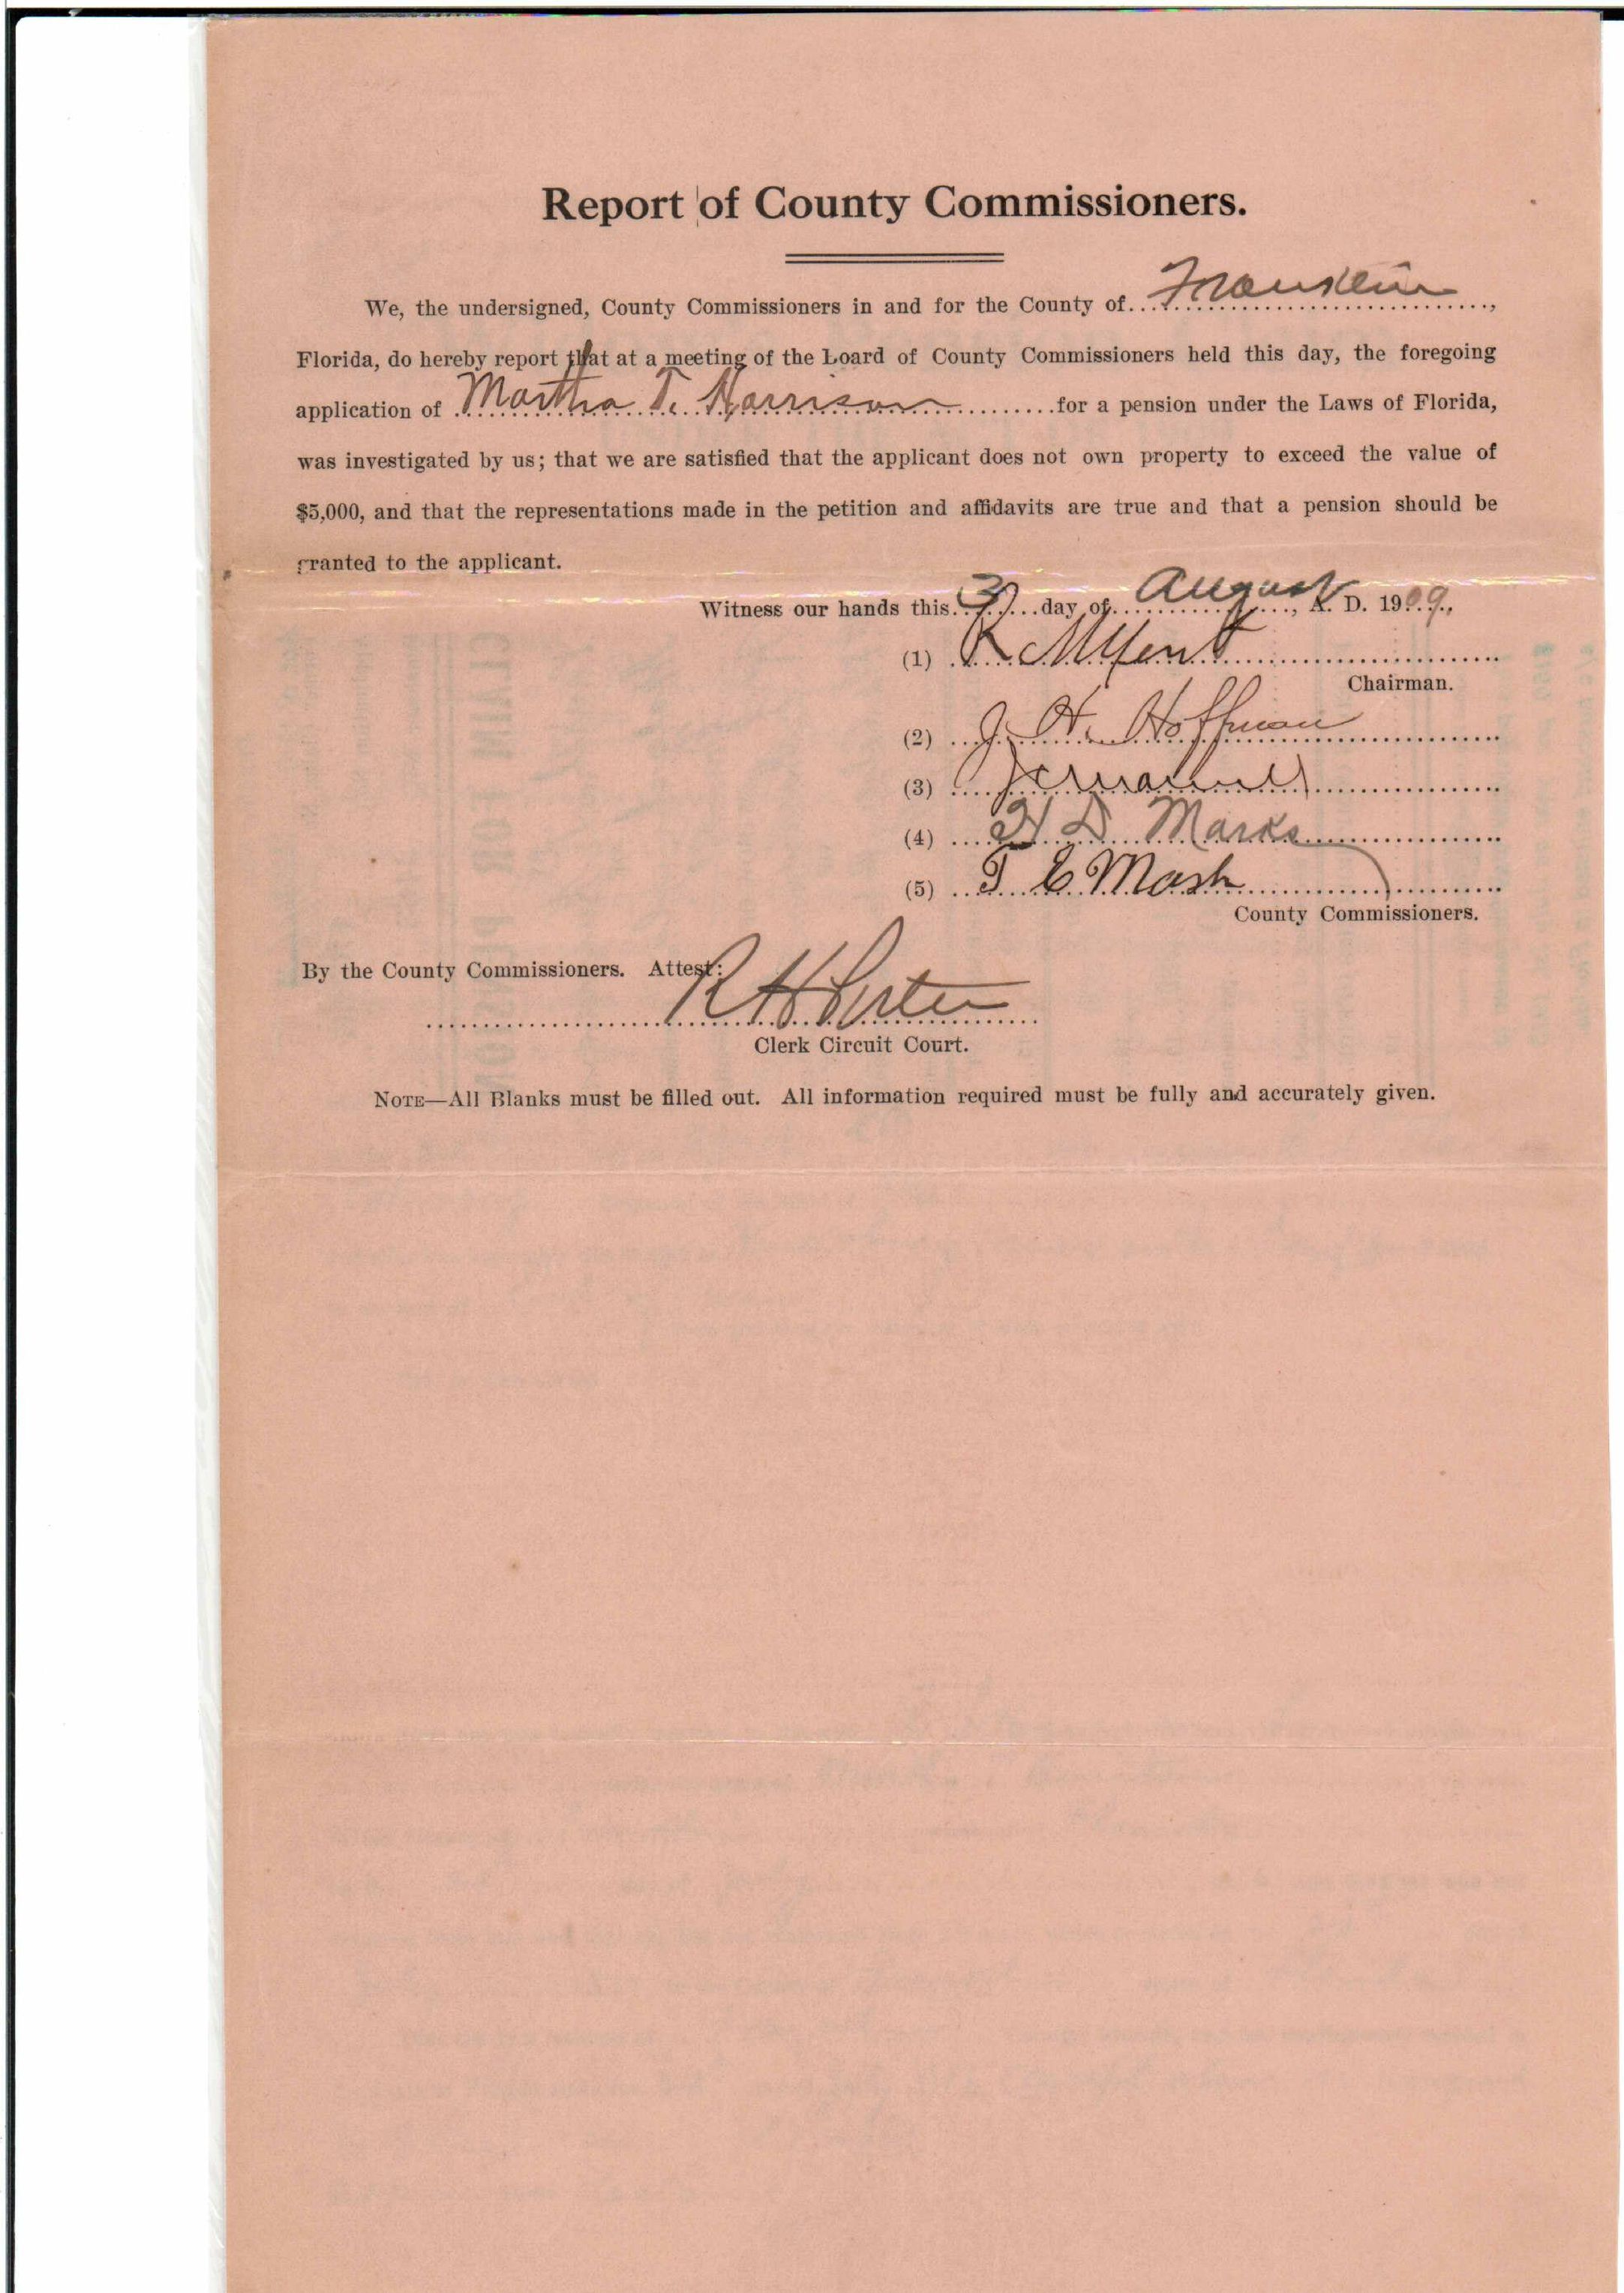 Report of County Commissioners.
We, the undersigned, County Commissioners in and for the County of Franklin,
Florida, do hereby report that at a meeting of the Loard of County Commissioners held this day, the foregoing
application of Martha T. Harrison for a pension under the Laws of Florida,
was investigated by us; that we are satisfied that the applicant does not own property to exceed the value of
$5,000, and that the representations made in the petition and affidavits are true and that a pension should be
granted to the applicant.
Witness our hands this day of August, A. D. 1909.,
(1) R
Chairman.
(2) J. H. Hoffman
(3)
(4) H D Marks
(5) T E Mash
County Commissioners.
By the County Commissioners. Attest:
R H Porter
Clerk Circuit Court.
NOTE—All Blanks must be filled out. All information required must be fully and accurately given.